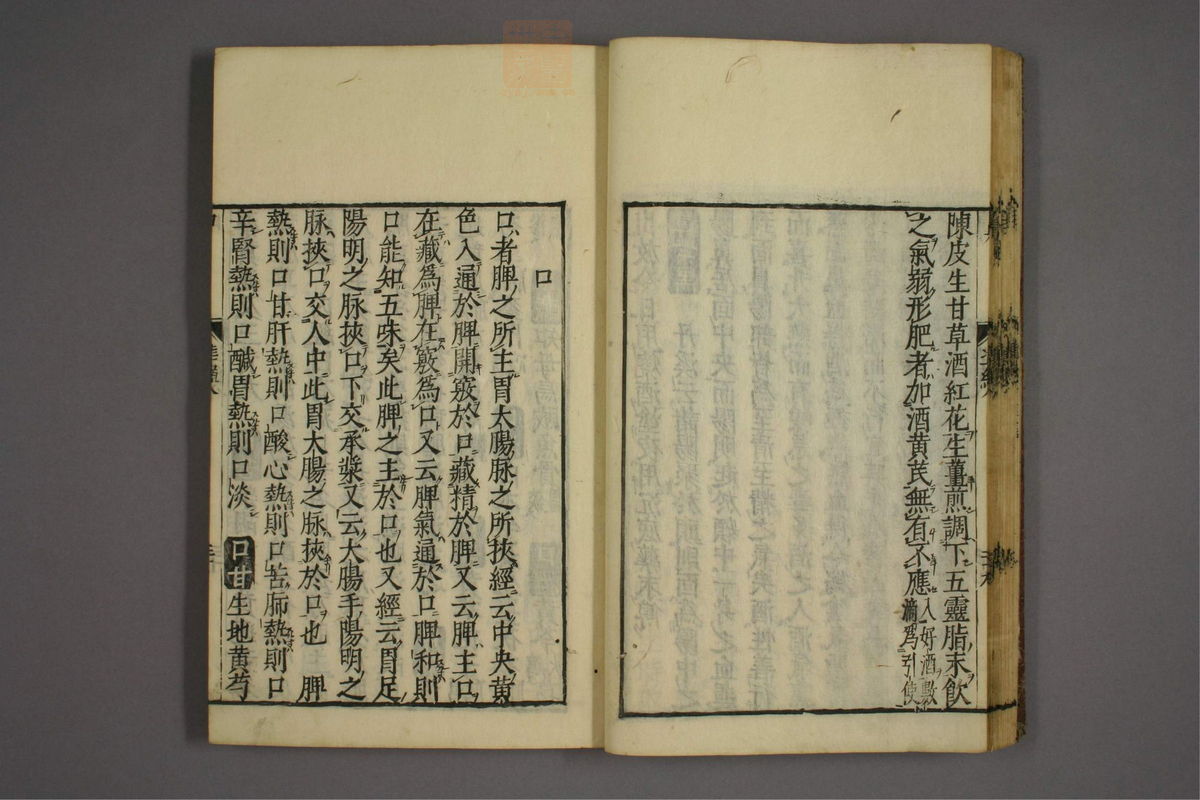 陳皮生甘草酒紅花生薑煎調下五靈脂末飲
之氣弱形肥者加酒黄芪無有不應入好酒數
滴爲引使
口
口者脾之所主胃太腸脉之所挾經云中央黄
色入通於脾開竅於口藏精於脾又云脾主口
在藏爲脾在竅爲口又云脾氣通於口脾和則
口能知五味矣此脾之主於口也又經云胃足
陽明之脉挾口下交承漿又云大腸手陽明之
脉挾口交人中此胃大腸之脉挾於口也 脾
熱則口甘肝熱則口酸心熱則口苦肺熱則口
辛腎熱則口醎胃熱則口淡 口甘生地黄芍